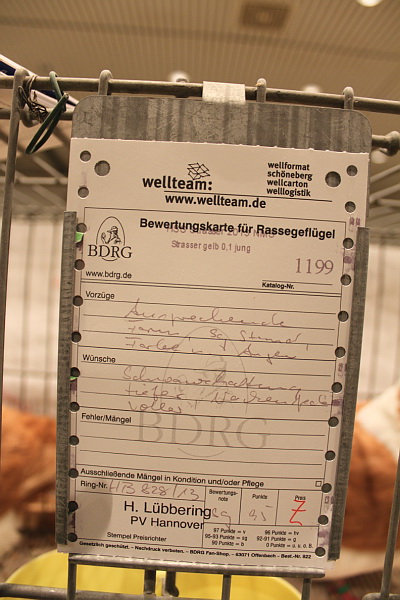 wellteam:
www.wellteam.de
wellformat
schöneberg
wellcarton
welllogistik
BDRG
www.bdrg.de
Bewertungskarte für Rassegeflügel
Strasser gelb 0,1 jung
1199
Katalog-Nr.
Vorzüge
Ansprechende
Form, sg Stand,
Farbe u. Augen
Wünsche
Schwanzhaltung
tiefer, Nackenfeder
voller
BDRG
Fehler/Mängel
Ausschließende Mängel in Kondition und/oder Pflege
Ring-Nr. 828/13
H. Lübbering
PV Hannover
Stempel Preisrichter
Bewertungs-
note
sg
Punkte
95
Preis
Z
97 Punkte = v
95-93 Punkte = sg
90 Punkte = b
96 Punkte = hv
92-91 Punkte = g
0 Punkte = u. o. B.
Gesetzlich geschützt. – Nachdruck verboten. – BDRG Fan-Shop. – 63071 Offenbach – Best.-Nr. 822